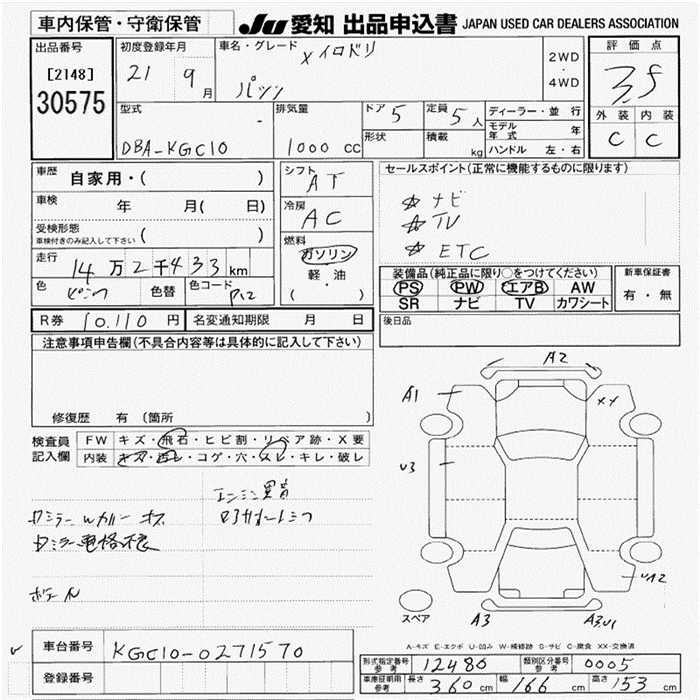 車内保管・守衛保管
JU 愛知 出品申込書 JAPAN USED CAR DEALERS ASSOCIATION
出品番号
[2148]
30575
初度登録年月
21 9月
車名・グレード
X イロドリ
パッソ
2WD
・
4WD
評価点
3.5
外装 内装
C C
型式
DBA-KGC10
排気量
1000 cc
ドア 5
形状
定員 5人
積載 kg
ディーラー・並行
モデル年式 年
ハンドル 左・右
車歴
自家用・( )
車検 年 月( 日)
受検形態
車検付きのみ記入して下さい ( )
走行 14万2千433km
色 ピンク 色替 色コード
シフト AT
冷房 AC
燃料
ガソリン
軽・油
・
( )
セールスポイント(正常に機能するものに限ります)
☆ ナビ
☆ TV
☆ ETC
装備品(純正品に限り○をつけてください)
PS PW エアB AW
SR ナビ TV カワシート
新車保証書
有・無
R券 10.110円 名変通知期限 月 日
後日品
注意事項申告欄(不具合内容等は具体的に記入して下さい)
修復歴 有(箇所 )
検査員記入欄
FW キズ・飛石・ヒビ割・リペア跡・X要
内装 キズ・汚レ・コゲ・穴・スレ・キレ・破レ
エンジン異音
A2
A1
XX
U3
A3
スペア
A-キズ E-エクボ U-凹み W-補修跡 S-サビ C-腐食 XX-交換済
車台番号 KGC10-0271570
登録番号
型式指定番号 参考 12480 類別区分番号 参考 0005
車庫証明用 参考 長さ 360cm 幅 166cm 高さ 153cm